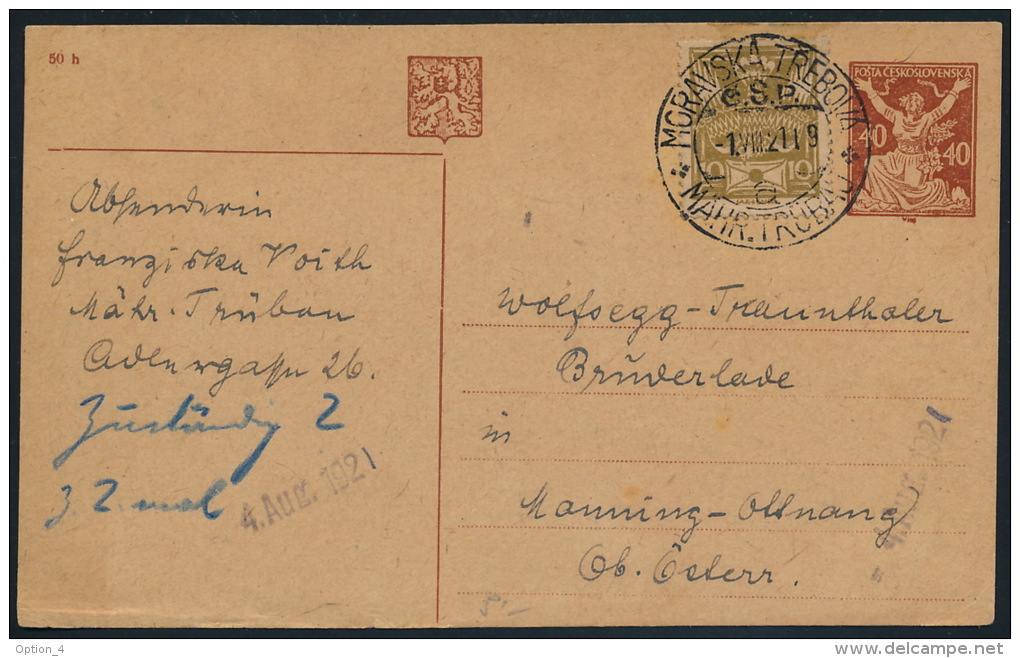 50 h
POŠTA ČESKOSLOVENSKÁ
40 40
10 10
MORAVSKÁ TŘEBOVÁ
Č.S.P.
-1.VIII.21 19
a
MÄHR. TRÜBAU
Absenderin
Franziska Voith
Mähr. Trübau
Adlergasse 26.
Zuständig 2
3. 2. mal
4. Aug. 1921
Wolfsegg-Traunthaler
Bruderlade
in
Manning-Ottnang
Ob. Österr.
4. Aug. 1921
Option_4
www.delcampe.net